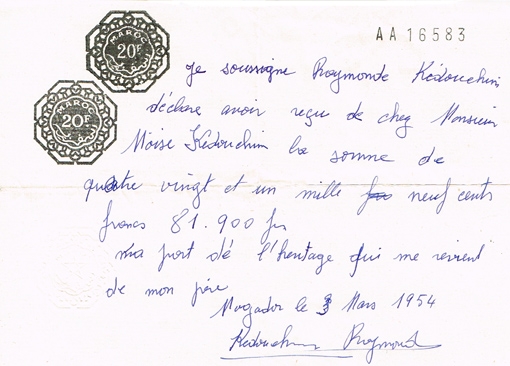 MAROC
20F
MAROC
20F
AA 16583
Je soussigne Raymonde Kédouchim
déclare avoir reçu de chez Monsieur
Moise Kédouchim la somme de
quatre vingt et un mille neuf cents
francs 81.900 frs
ma part dé l'heritage qui me revient
de mon père
Mogador le 3 Mars 1954
Kédouchim Raymond